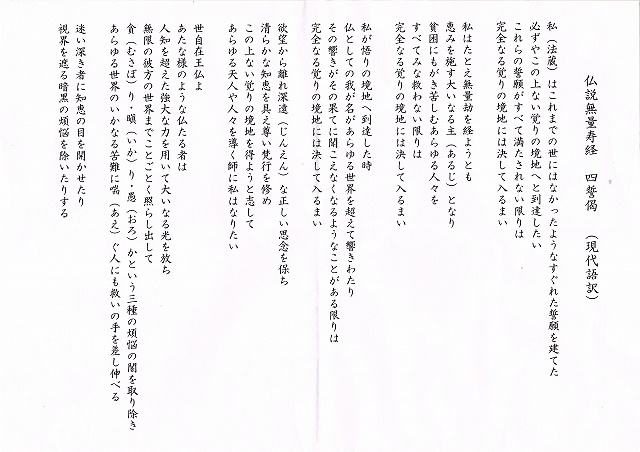 仏説無量寿経　四誓偈　（現代語訳）
私（法蔵）はこれまでの世にはなかったようなすぐれた誓願を建てた
必ずやこの上ない覚りの境地へと到達したい
これらの誓願がすべて満たされない限りは
完全なる覚りの境地には決して入るまい
私はたとえ無量劫を経ようとも
恵みを施す大いなる主（あるじ）となり
貧困にもがき苦しむあらゆる人々を
すべてみな救わない限りは
完全なる覚りの境地には決して入るまい
私が悟りの境地へ到達した時
仏としての我が名があらゆる世界を超えて響きわたり
その響きがその果てに聞こえなくなるようなことがある限りは
完全なる覚りの境地には決して入るまい
欲望から離れ深遠（じんえん）な正しい思念を保ち
清らかな知恵を具え尊い梵行を修め
この上ない覚りの境地を得ようと志して
あらゆる天人や人々を導く師に私はなりたい
世自在王仏よ
あなた様のような仏たる者は
人知を超えた強大な力を用いて大いなる光を放ち
無限の彼方の世界までことごとく照らし出して
貪（むさぼ）り・嗔（いか）り・愚（おろ）かという三種の煩悩の闇を取り除き
あらゆる世界のいかなる苦難に喘（あえ）ぐ人にも救いの手を差し伸べる
迷い深き者に知恵の目を開かせたり
視界を遮る暗黒の煩悩を除いたりする